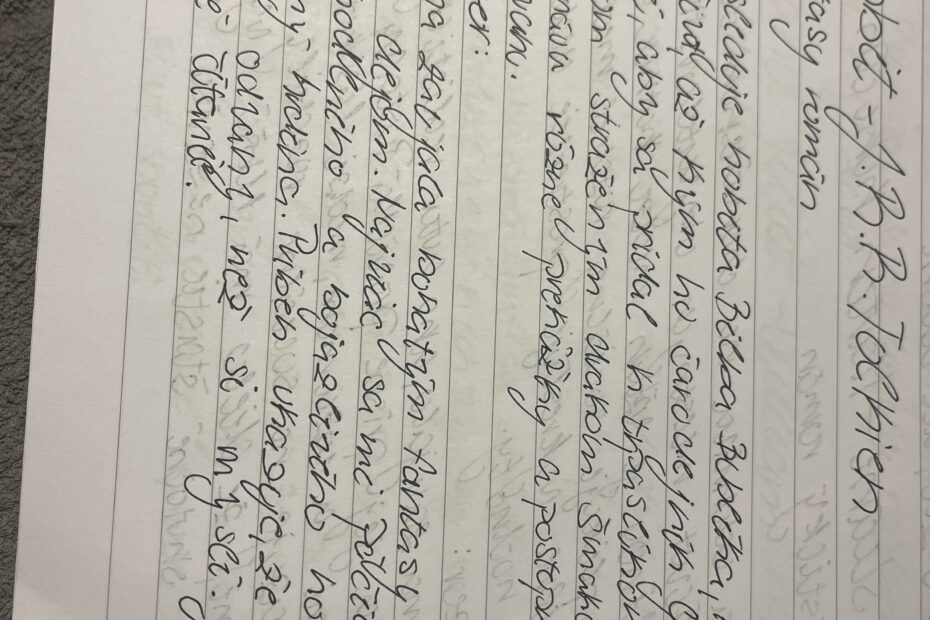 obit - J.R.R. Tolkien
fantasy román
sleduje hobita Bilba Bublíka,
až kým ho čarodejník G
, aby sa pridal k trpaslíkom
strážený drakom Šmako
rôzne prekážky a postupn
nom.
er:
na zaujala bohatým fantasy
dejom. Najviac sa mi páčil
podlného a bojazlivého ho
ny hrdina. Príbeh ukazuje, že
odvahy, než si myslí.
čítanie.